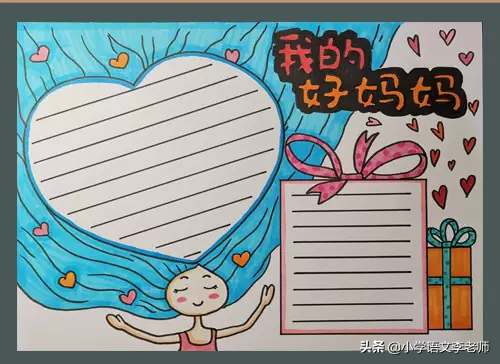 我的
好妈妈
头条 @小学语文李老师